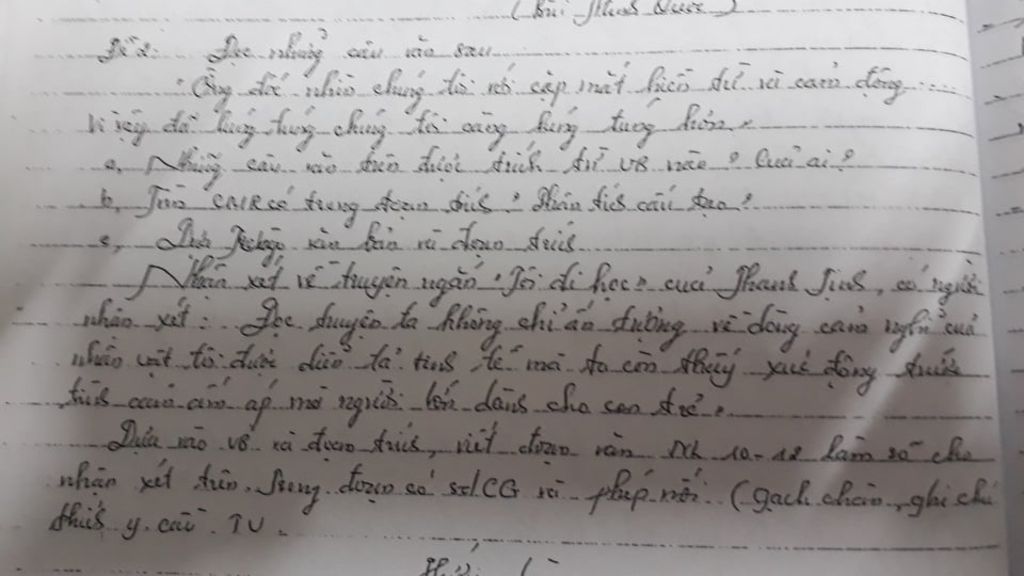 (Bùi Thanh Quốc)
Đề 2: Đọc những câu văn sau
"Ông đốc nhìn chúng tôi với cặp mắt hiền từ và cảm động ....
Vì vậy đã lúng túng chúng tôi càng lúng túng hơn"
a, Những câu văn trên được trích từ VB nào? Của ai?
b, Tìm có trong đoạn trích? Phân tích cấu tạo?
c, Dựa vào văn bản và đoạn trích
Nhận xét về truyện ngắn "Tôi đi học" của Thanh Tịnh, có người
nhận xét: Đọc truyện ta không chỉ ấn tượng về dòng cảm nghĩ của
nhân vật tôi được diễn tả tinh tế mà ta còn thấy xúc động trước
tình cảm ấm áp mà người lớn dành cho con trẻ".
Dựa vào VB và đoạn trích, viết đoạn văn 10-12 làm rõ cho
nhận xét trên. Trong đoạn có và phép nối. (gạch chân, ghi chú
thích y.cầu TV.